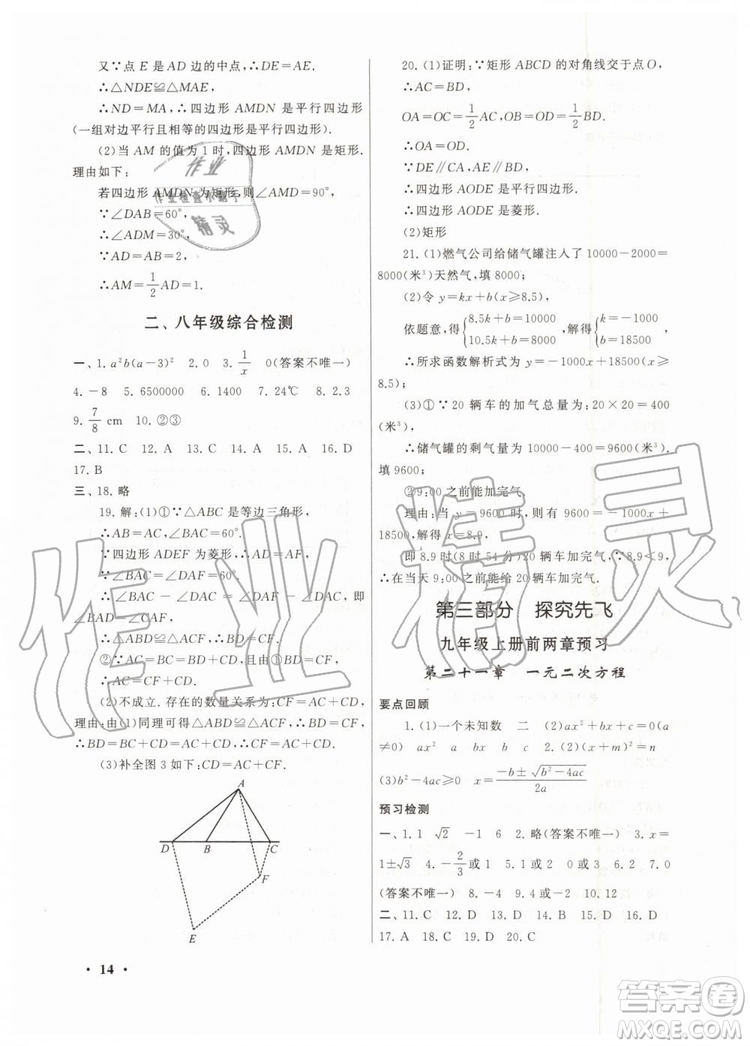 又∵点 E 是 AD 边的中点,∴DE=AE.
∴△NDE≌△MAE.
∴ND=MA,∴四边形 AMDN 是平行四边形
(一组对边平行且相等的四边形是平行四边形).
(2)当 AM 的值为 1 时,四边形 AMDN 是矩形.
理由如下:
若四边形 AMDN 为矩形,∠AMD=90°,
∵∠DAB=60°,
∴∠ADM=30°,
∵AD=AB=2,
∴AM=1/2 AD=1.
二、八年级综合检测
一、1.a²b(a-3)² 2.0 3.1/x 0(答案不唯一)
4.-8 5.6500000 6.1400 7.24℃ 8.2,3
9.7/8 cm 10.②③
二、11.C 12.A 13.C 14.C 15.A 16.D
17.B
三、18.略
19.解:(1)①∵△ABC 是等边三角形,
∴AB=AC,∠BAC=60°.
∵四边形 ADEF 为菱形,
∴AD=AF.
∵∠DAF=60°,
∴∠BAC=∠DAF.
∴∠BAC-∠DAC=∠DAF-∠DAC.
∴∠BAD=∠CAF.
∴△BAD≌△CAF.
∴∠ADB=∠AFC.
②∵△BAD≌△CAF,
∴BD=CF.
∵BC=BD+CD,
∴AC=CF+CD.
(2)不成立.存在的数量关系为:CF=AC+CD.
理由:由(1)同理可得△BAD≌△CAF,
∴BD=BC+CD=AC+CD,∴CF=AC+CD.
(3)补全图 3 如下:CD=AC+CF.
A
D B C
F
E
· 14 ·
20.(1)证明:∵矩形 ABCD 的对角线交于点 O,
∴AC=BD,
OA=OC=1/2 AC,OB=OD=1/2 BD,
∴OA=OD.
∵DE∥CA,AE∥BD,
∴四边形 AODE 是平行四边形.
∴四边形 AODE 是菱形.
(2)矩形
21.(1)燃气公司给储气罐注入了 10000-2000=
8000(米³)天然气,填 8000;
(2)令 y=kx+b(x≥8.5),
依题意,得{8.5k+b=10000, 10.5k+b=8000,解得{k=-1000, b=18500,
∴所求函数解析式为 y=-1000x+18500(x≥
8.5);
(3)①∵20 辆车的加气总量为:20×20=400
(米³),
∴储气罐的剩气量为:10000-400=9600(米³).
填 9600;
②9:00 之前能加完气.
理由:当 y=9600 时,则 9600=-1000x+
18500,解得 x=8.9,
即 8.9 时(8 时 54 分)20 辆车加完气,∵8.9<9,
∴在当天 9:00 之前能给 20 辆车加完气.
第三部分 探究先飞
九年级上册前两章预习
第二十一章 一元二次方程
要点回顾
1.(1)一个未知数 二 (2)ax²+bx+c=0(a
≠0) ax² a bx b c 2.(2)(x+m)²=n
(3)b²-4ac≥0 x=(-b±√(b²-4ac))/2a
预习检测
一、1.1 √2 -1 6 2.略(答案不唯一) 3.x=
1±√3 4.-2/3 5.x₁=-2,x₂=0 6.2 7.0
(答案不唯一) 8.-4 9.-2 10.2
二、11.C 12.C 13.D 14.B 15.D 16.C
17.A 18.C 19.D 20.C
作业精灵
作业
作业检查小助手
精灵
答案圈
MXQE.COM